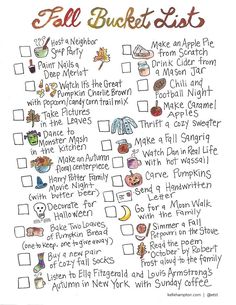 Fall Bucket List
Host a Neighbor
Soup Party
Paint Nails a
Deep Merlot
Watch It's the Great
Pumpkin Charlie Brown
with popcorn/candy corn trail mix
Take Pictures
in the Leaves
Dance to
Monster Mash
in the kitchen
Make an Autumn
floral centerpiece
Harry Potter Family
Movie Night
(with butter beer)
Decorate for
Halloween
Bake Two Loaves
of Pumpkin Bread
(one to keep, one to give away)
Buy a new pair
of cozy fall socks
Listen to Ella Fitzgerald and Louis Armstrong's
Autumn in New York with Sunday coffee
Make an Apple Pie
from Scratch
Drink Cider from
a Mason Jar
Chili and
Football Night
Make Caramel
Apples
Thrift a cozy sweater
Make a Fall Sangria
Watch Dan in Real Life
with hot wassail
Carve Pumpkins
Send a Handwritten
Letter
Go for a Moon Walk
with the Family
Simmer a Fall
Potpourri on the Stove
Read the poem
"October" by Robert
Frost aloud to the family
kellehampton.com | @etst